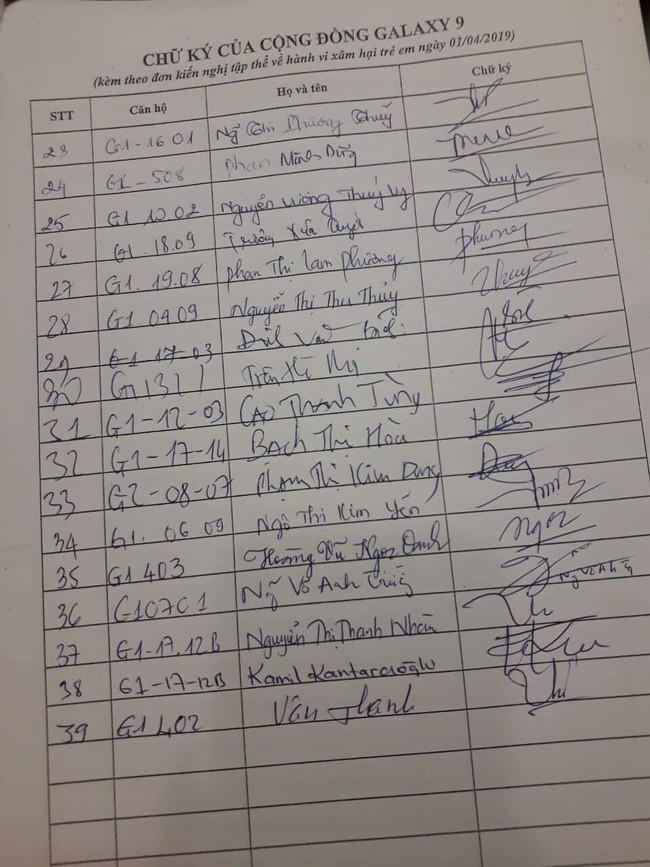 CHỮ KÝ CỦA CỘNG ĐỒNG GALAXY 9
(kèm theo đơn kiến nghị tập thể về hành vi xâm hại trẻ em ngày 01/04/2019)
STT Căn hộ Họ và tên Chữ ký
23 G1-16 01 Ng Phương Thuý
24 G1-508 Phan Minh Dũng
25 G1 10.02 Nguyễn Thuý
26 G1.18.09 Trương
27 G1.19.08 Phan Thị Lam Phương phuong
28 G1 0909 Nguyễn Thị Thu Thủy Thuy
29 G1 17-03
30 G1311 Trần
31 G1-12-03 CAO THANH TÙNG
32 G1-17-14 BẠCH THỊ HÒA Hoa
33 G2-08-07 PHẠM THỊ Kim Dung
34 G1.06 09 Ngô Thị Kim Yến
35 G1 403 Hoàng Vũ Ngọc Oanh ngoc
36 G107C1 Ng Võ Anh
37 G1-17.12B Nguyễn Thị Thanh Nhàn
38 G1-17-12B Kamil Kantarcıoğlu
39 G1 402 Vân